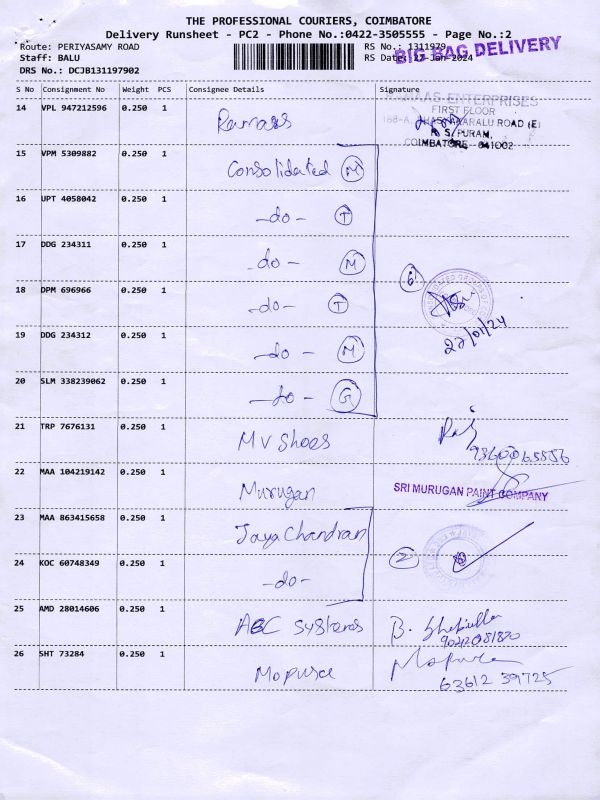 THE PROFESSIONAL COURIERS, COIMBATORE
Delivery Runsheet - PC2 - Phone No.:0422-3505555 - Page No.:2
Route: PERIYASAMY ROAD RS No.: 1311979
BIG BAG DELIVERY
Staff: BALU RS Date: 27-Jan-2024
DRS No.: DCJB131197902
S No Consignment No Weight PCS Consignee Details Signature
14 VPL 947212596 0.250 1 Ramaas
ENTERPRISES
FIRST FLOOR
ROAD (E)
R. S. PURAM,
COIMBATORE - 641002
15 VPM 5309882 0.250 1 Consolidated M
16 UPT 4058042 0.250 1 -do- T
17 DDG 234311 0.250 1 -do- M
6
18 DPM 696966 0.250 1 -do- T
22/01/24
19 DDG 234312 0.250 1 -do- M
20 SLM 338239062 0.250 1 -do- G
21 TRP 7676131 0.250 1 MV Shoes Raj
22 MAA 104219142 0.250 1 Murugan
SRI MURUGAN PAINT COMPANY
23 MAA 863415658 0.250 1 Jaya Chandran
24 KOC 60748349 0.250 1 -do- 2
25 AMD 28014606 0.250 1 ABC Systems B.
26 SHT 73284 0.250 1 Mopusa
63612 39725